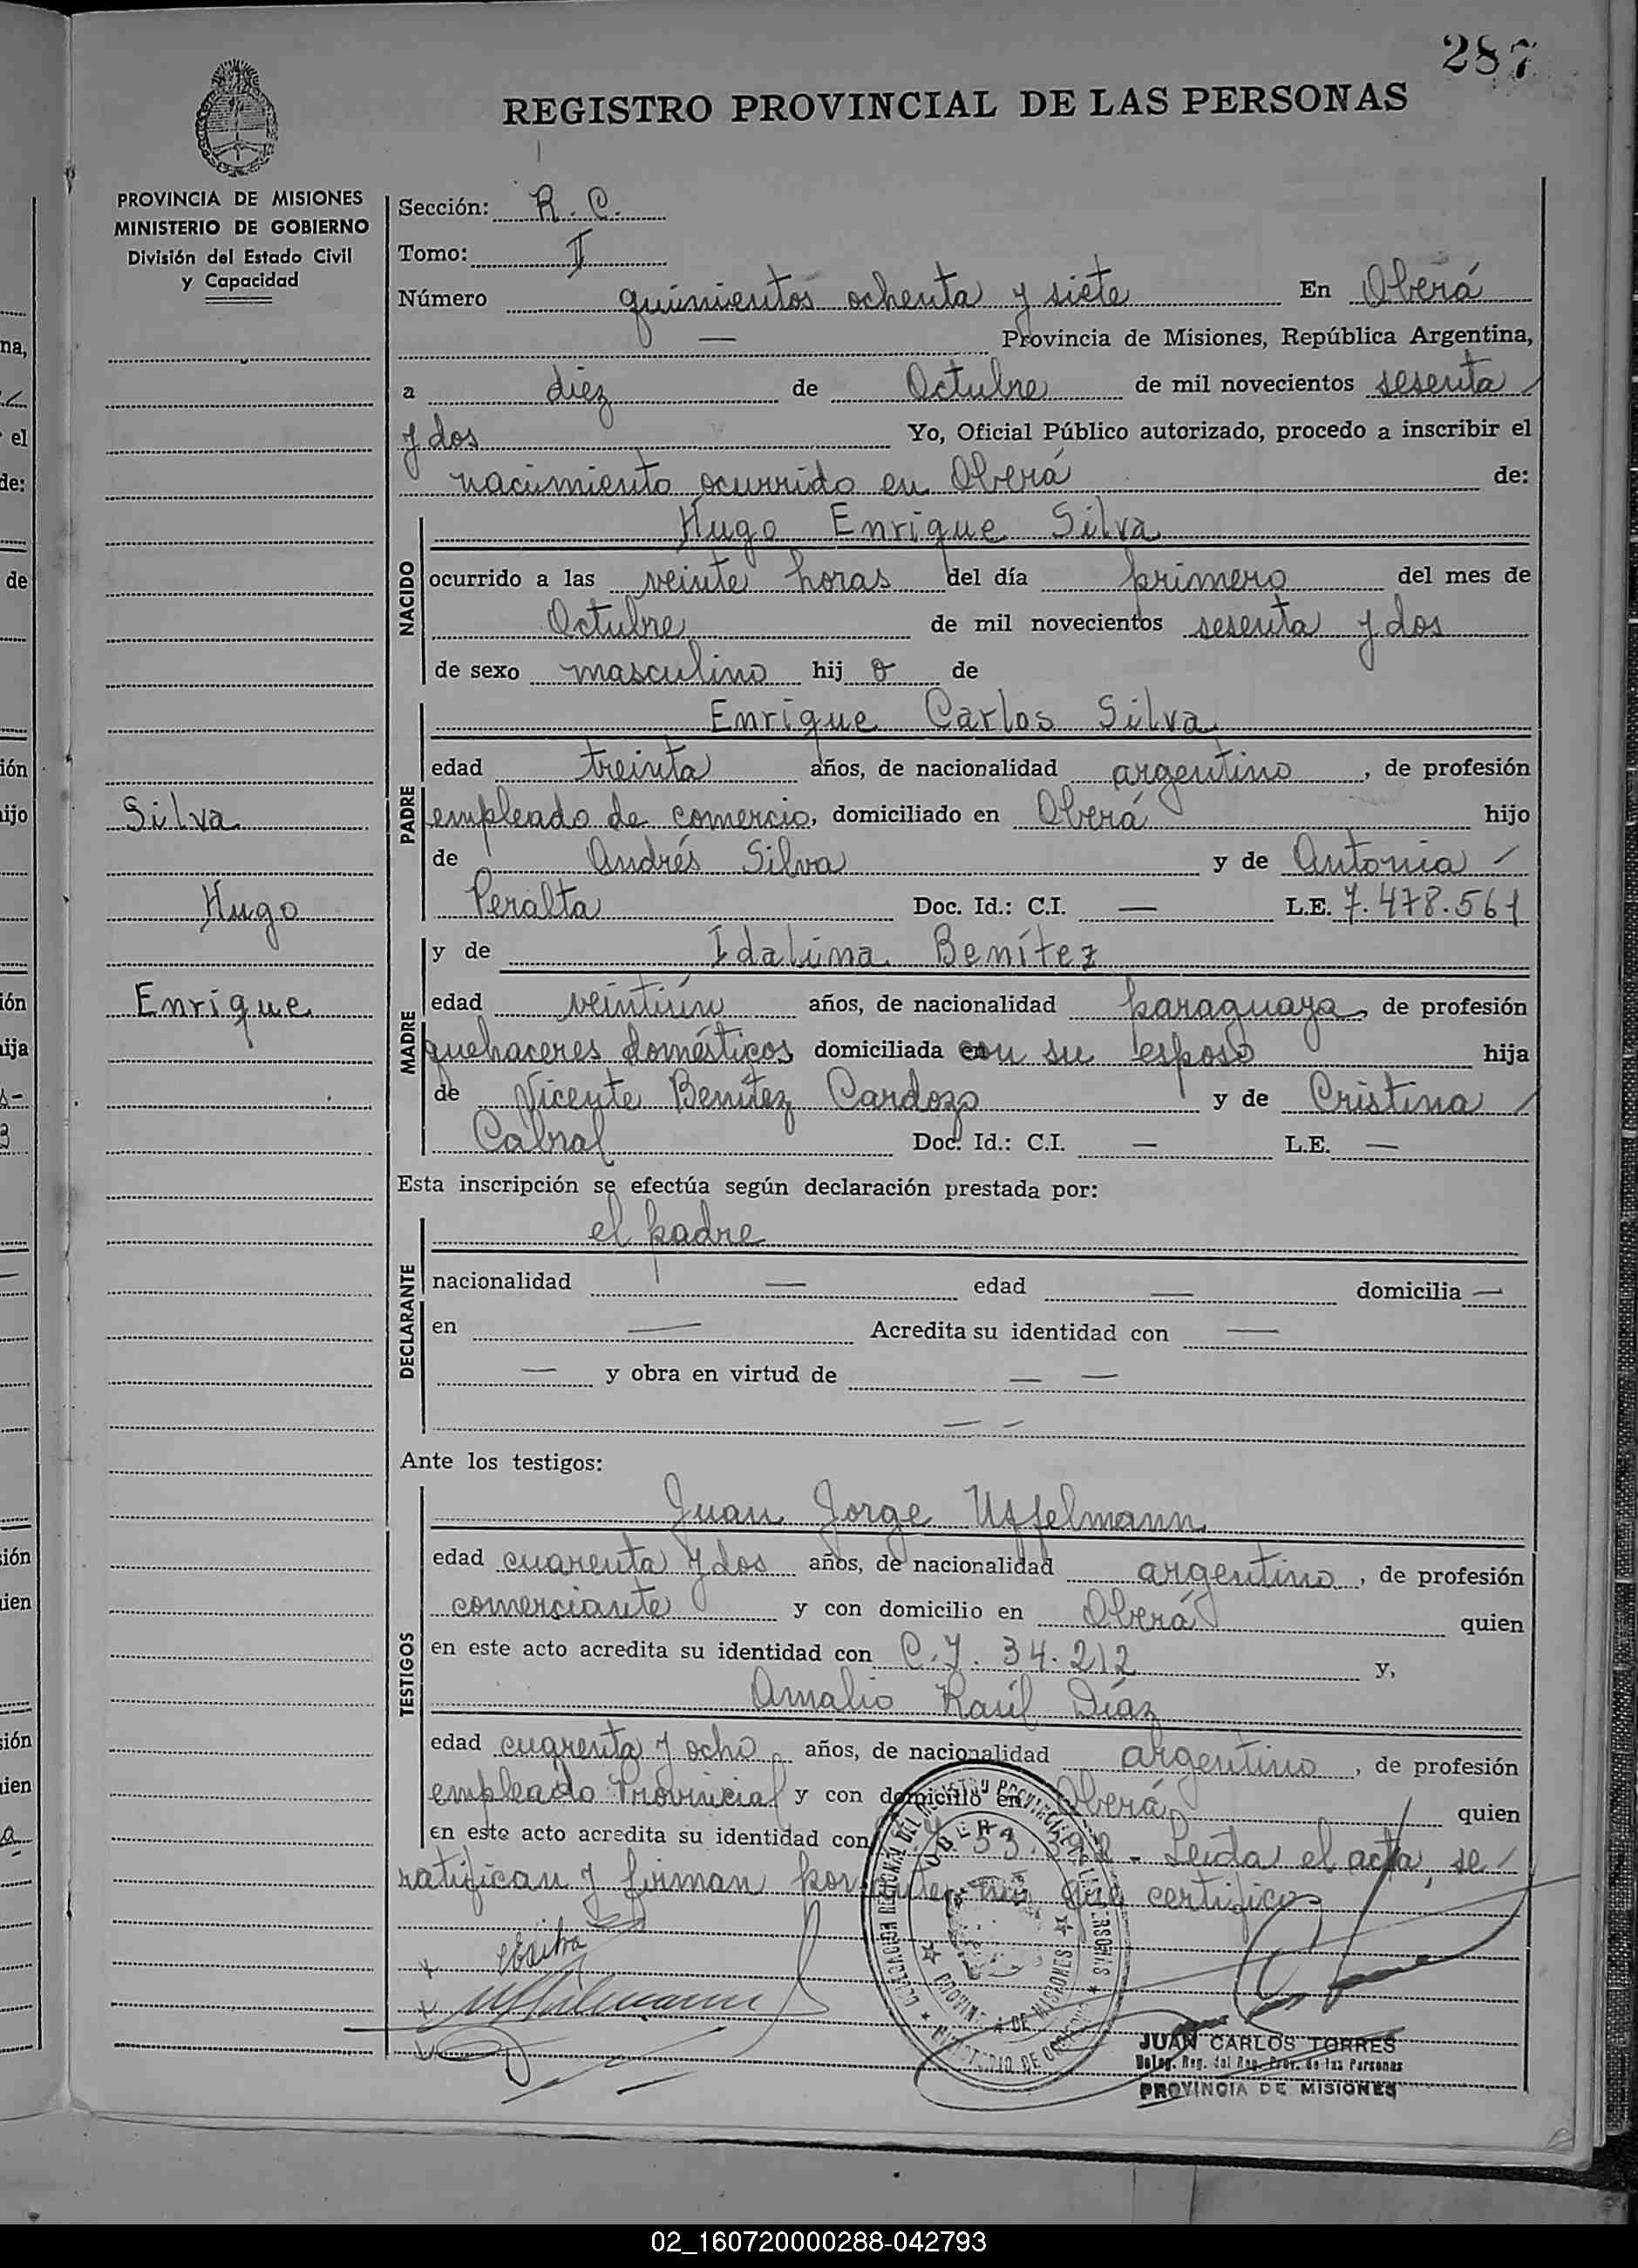 287
REGISTRO PROVINCIAL DE LAS PERSONAS
PROVINCIA DE MISIONES
MINISTERIO DE GOBIERNO
División del Estado Civil
y Capacidad
Sección: R. C.
Tomo: II
Número quinientos ochenta y siete En Oberá
— Provincia de Misiones, República Argentina,
a diez de Octubre de mil novecientos sesenta
y dos Yo, Oficial Público autorizado, procedo a inscribir el
nacimiento ocurrido en Oberá de:
NACIDO
Hugo Enrique Silva
ocurrido a las veinte horas del día primero del mes de
Octubre de mil novecientos sesenta y dos
de sexo masculino hij o de
PADRE
Enrique Carlos Silva
edad treinta años, de nacionalidad argentino, de profesión
empleado de comercio, domiciliado en Oberá hijo
de Andrés Silva y de Antonia
Peralta Doc. Id.: C.I. — L.E. 7.478.561
Silva
Hugo
Enrique
MADRE
y de Idalina Benítez
edad veintiún años, de nacionalidad paraguaya, de profesión
quehaceres domésticos domiciliada con su esposo hija
de Vicente Benítez Cardozo y de Cristina
Cabral Doc. Id.: C.I. — L.E. —
Esta inscripción se efectúa según declaración prestada por:
DECLARANTE
el padre
nacionalidad — edad — domicilia —
en — Acredita su identidad con —
— y obra en virtud de — —
— —
Ante los testigos:
TESTIGOS
Juan Jorge Uffelmann
edad cuarenta y dos años, de nacionalidad argentino, de profesión
comerciante y con domicilio en Oberá quien
en este acto acredita su identidad con C.I. 34.212 y,
Amalio Raúl Díaz
edad cuarenta y ocho años, de nacionalidad argentino, de profesión
empleado Provincial y con domicilio en Oberá quien
en este acto acredita su identidad con - Leída el acta, se
ratifican y firman por ante mi que certifico
OBERA
PROVINCIA DE MISIONES
JUAN CARLOS TORRES
Deleg. Reg. del Reg. Prov. de las Personas
PROVINCIA DE MISIONES
02_160720000288-042793